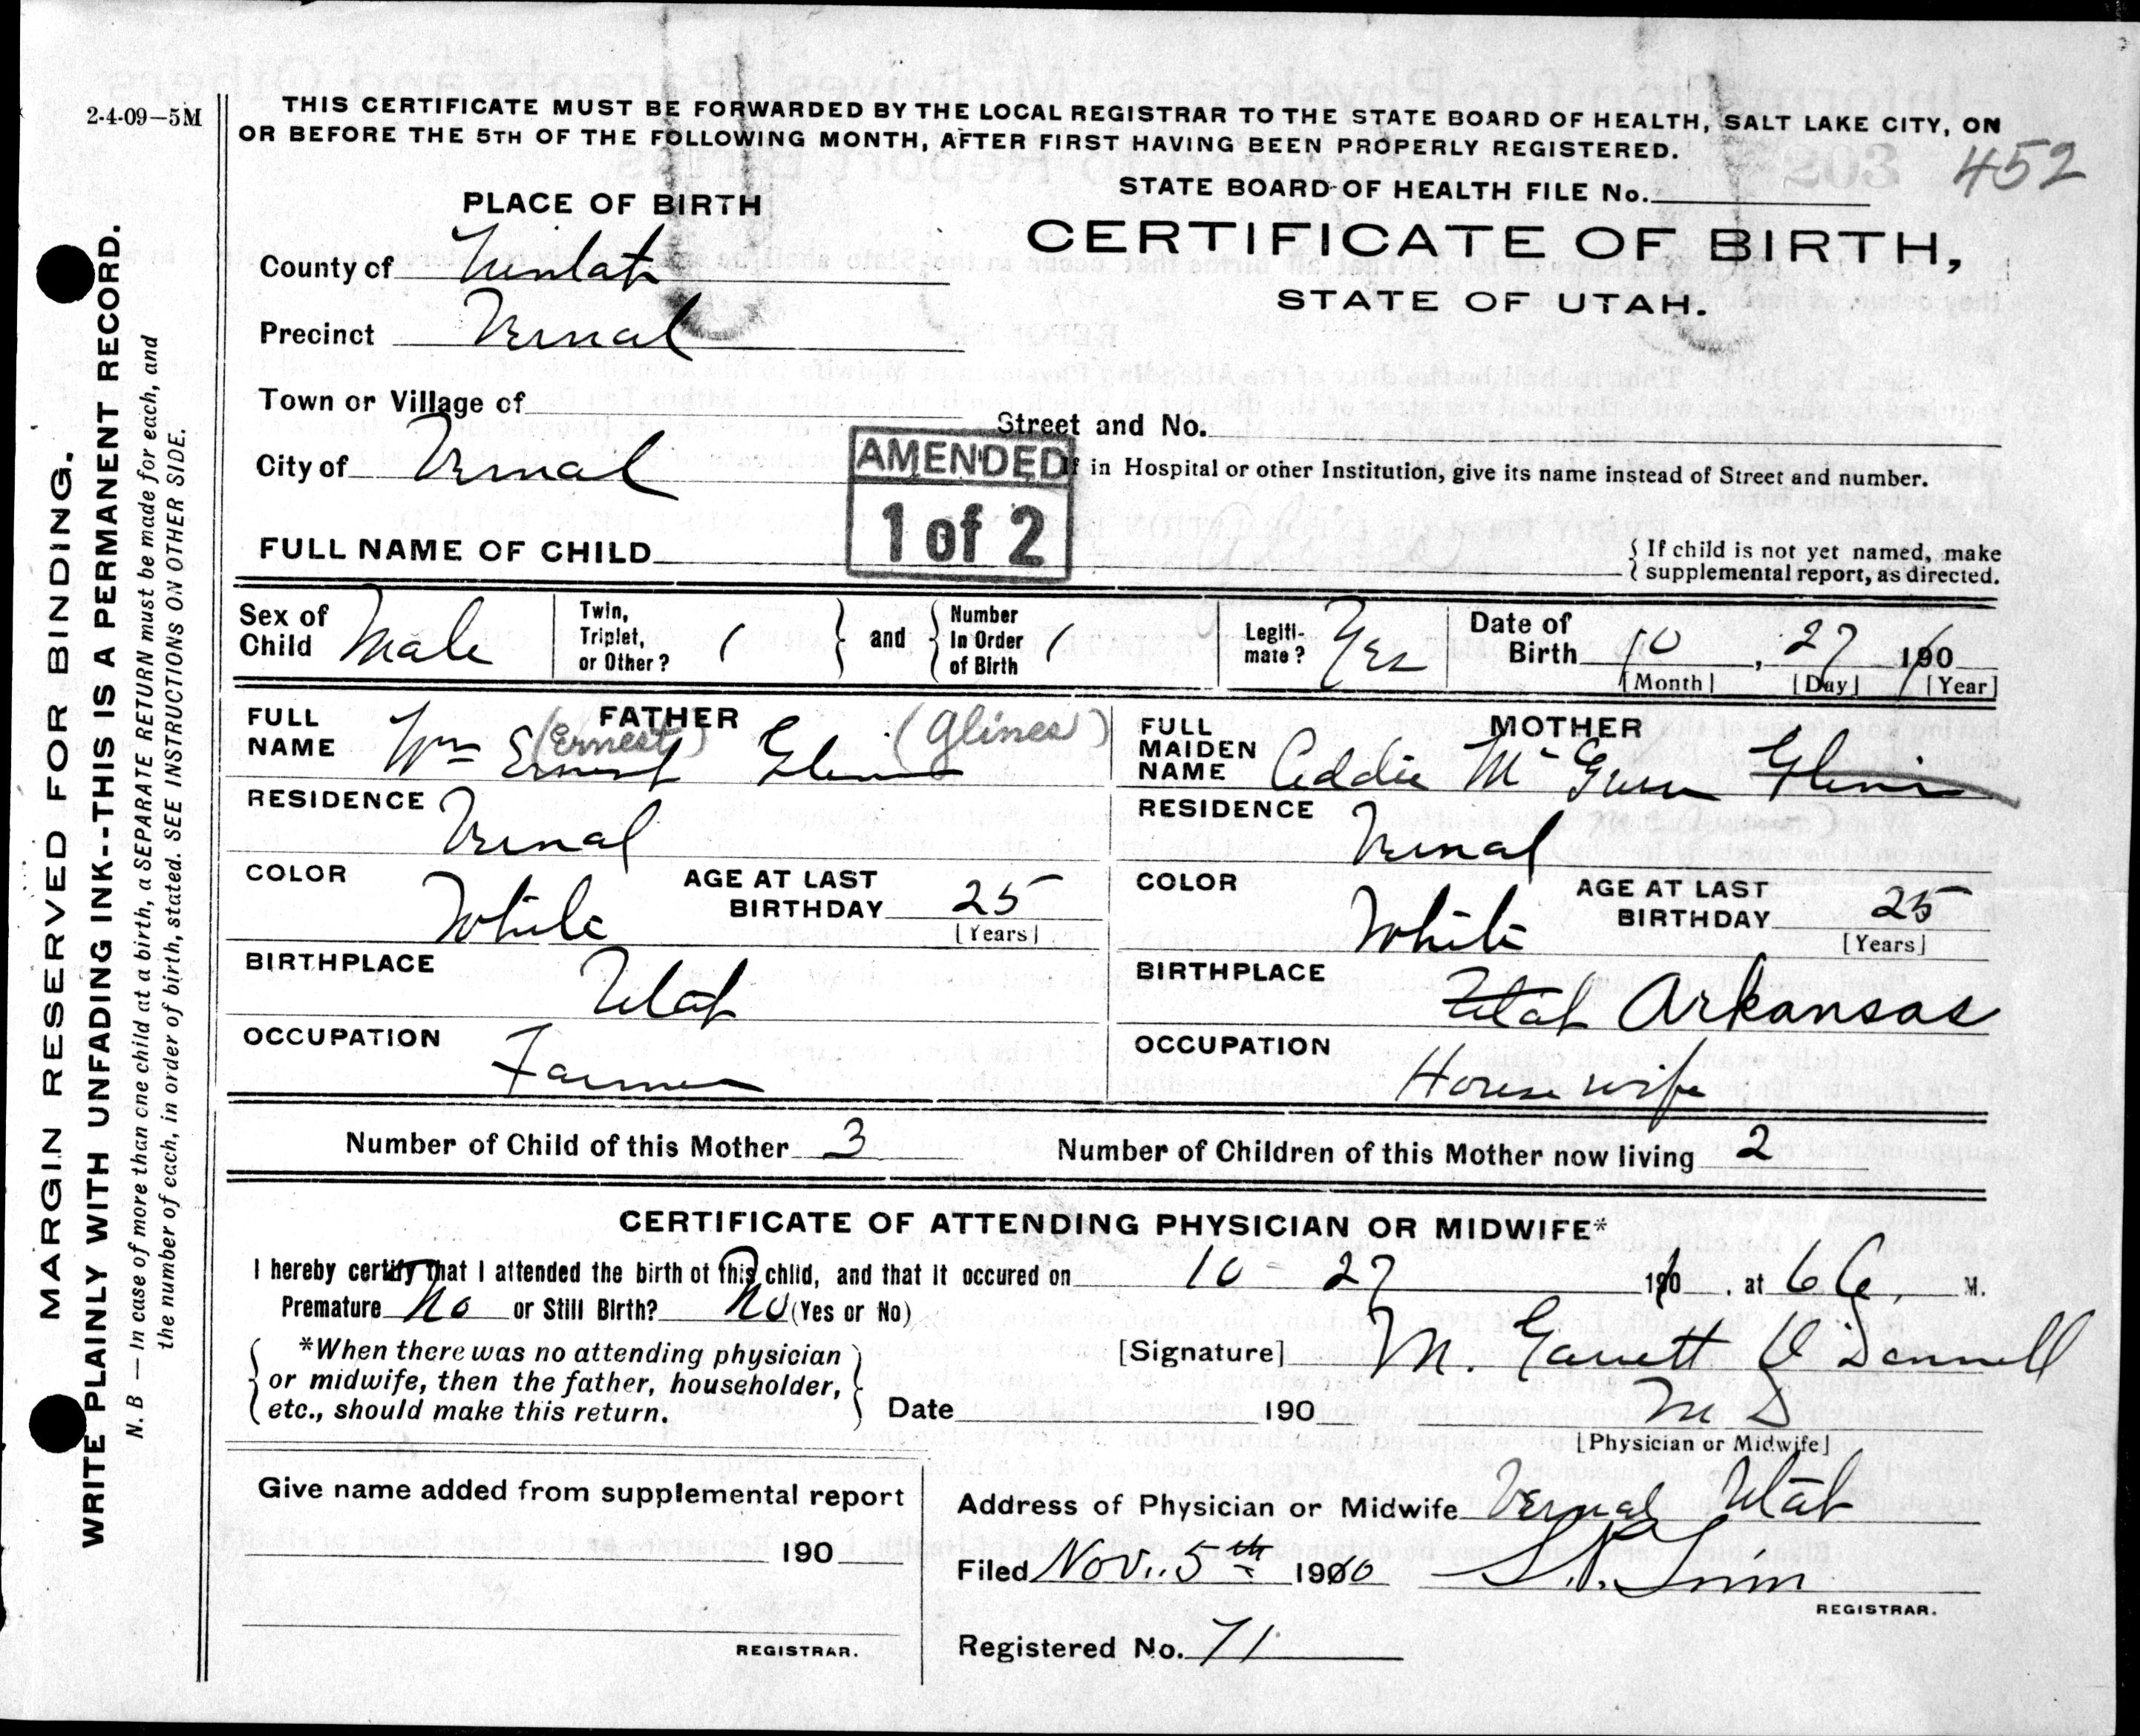 2-4-09—5M
THIS CERTIFICATE MUST BE FORWARDED BY THE LOCAL REGISTRAR TO THE STATE BOARD OF HEALTH, SALT LAKE CITY, ON
OR BEFORE THE 5TH OF THE FOLLOWING MONTH, AFTER FIRST HAVING BEEN PROPERLY REGISTERED.
203 452
STATE BOARD OF HEALTH FILE No.
PLACE OF BIRTH
CERTIFICATE OF BIRTH,
STATE OF UTAH.
County of Uintah
Precinct Vernal
Town or Village of
Street and No.
City of Vernal
If in Hospital or other Institution, give its name instead of Street and number.
AMENDED
1 of 2
FULL NAME OF CHILD
{ If child is not yet named, make
supplemental report, as directed.
Sex of Child Male
Twin, Triplet, or Other? 1 } and { Number In Order of Birth 1
Legiti-mate? Yes
Date of Birth 10, 27 190
[Month] [Day] [Year]
FATHER
FULL NAME Wm Ernest (Ernest) Glines (Glines)
RESIDENCE Vernal
COLOR White AGE AT LAST BIRTHDAY 25
[Years]
BIRTHPLACE Utah
OCCUPATION Farmer
MOTHER
FULL MAIDEN NAME Addie Glines
RESIDENCE Vernal
COLOR White AGE AT LAST BIRTHDAY 25
[Years]
BIRTHPLACE Utah Arkansas
OCCUPATION House wife
Number of Child of this Mother 3 Number of Children of this Mother now living 2
CERTIFICATE OF ATTENDING PHYSICIAN OR MIDWIFE*
I hereby certify that I attended the birth of this child, and that it occured on 10 - 27 1910, at 6 M.
Premature No or Still Birth? No (Yes or No)
{ *When there was no attending physician
or midwife, then the father, householder,
etc., should make this return. }
[Signature] M. Garrett O'Donnell
M D
Date 190
[Physician or Midwife]
Give name added from supplemental report
190
REGISTRAR.
Address of Physician or Midwife Vernal Utah
Filed Nov. 5th 1910
REGISTRAR.
Registered No. 71
MARGIN RESERVED FOR BINDING.
WRITE PLAINLY WITH UNFADING INK--THIS IS A PERMANENT RECORD.
N. B — In case of more than one child at a birth, a SEPARATE RETURN must be made for each, and
the number of each, in order of birth, stated. SEE INSTRUCTIONS ON OTHER SIDE.